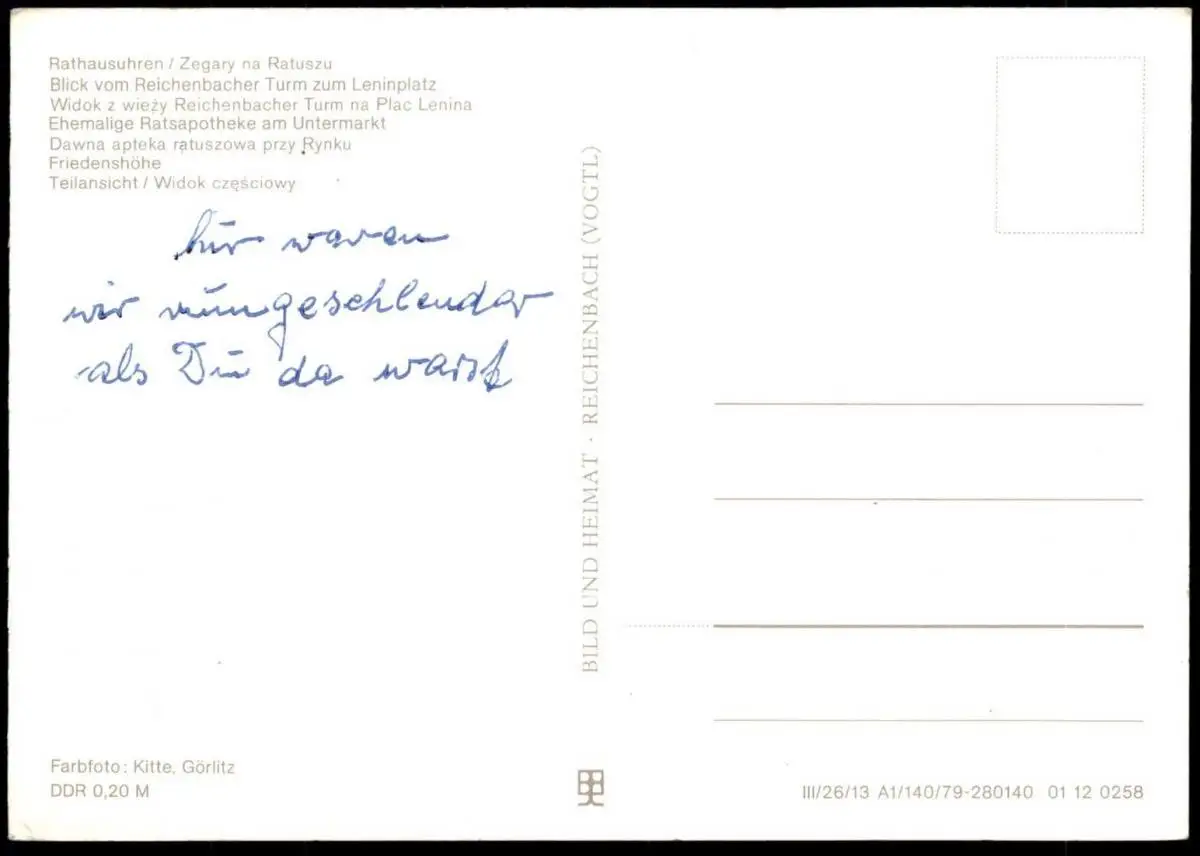 Rathausuhren / Zegary na Ratuszu
Blick vom Reichenbacher Turm zum Leninplatz
Widok z wieży Reichenbacher Turm na Plac Lenina
Ehemalige Ratsapotheke am Untermarkt
Dawna apteka ratuszowa przy Rynku
Friedenshöhe
Teilansicht / Widok częściowy
hir waren
wir rumgeschlendar
als Du da warst
BILD UND HEIMAT · REICHENBACH (VOGTL)
Farbfoto: Kitte, Görlitz
DDR 0,20 M
III/26/13 A1/140/79-280140 01 12 0258